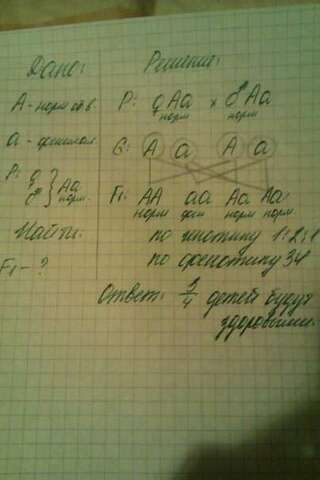 Дано:
А - норм. обв.
а - фенилал.
P: ♀ ♂ } Aa норм.
Найти:
F₁ - ?
Решение:
P: ♀ Aa х ♂ Aa
норм норм
G: A a A a
F₁: AA aa Aa Aa
норм фен норм норм.
по генотипу 1:2:1
по фенотипу 3:1
Ответ: 3/4 детей будут
здоровыми.